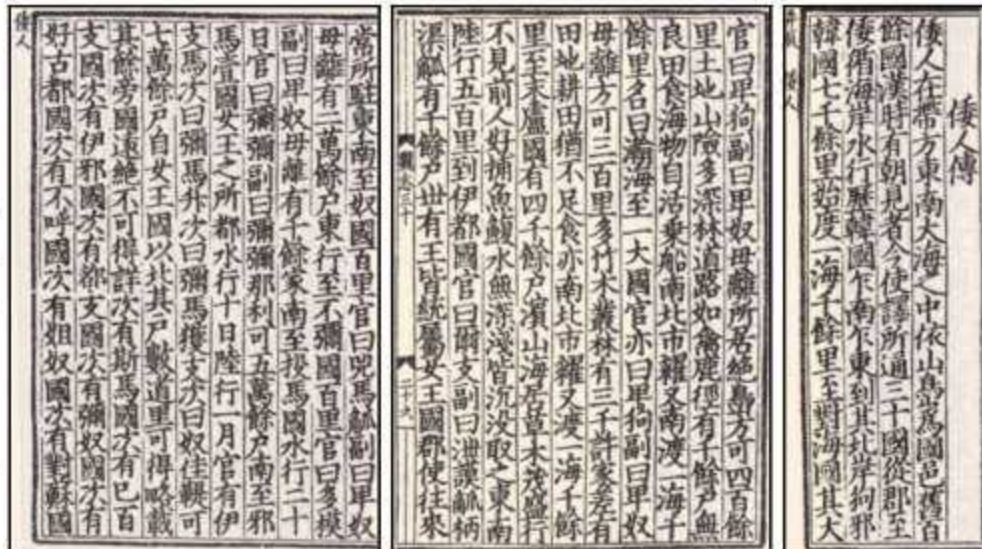 倭人傳
倭人在帶方東南大海之中依山㠀為國邑舊百
餘國漢時有朝見者今使譯所通三十國從郡至
倭循海岸水行歷韓國乍南乍東到其北岸狗邪
韓國七千餘里始度一海千餘里至對海國其大
倭人
官曰卑狗副曰卑奴母離所居絕㠀方可四百餘
里土地山險多深林道路如禽鹿徑有千餘戶無
良田食海物自活乗船南北市糴又南渡一海千
餘里名曰瀚海至一大國官亦曰卑狗副曰卑奴
母離方可三百里多竹木叢林有三千許家差有
田地耕田猶不足食亦南北市糴又渡一海千餘
里至末盧國有四千餘戶濱山海居草木茂盛行
不見前人好捕魚鰒水無深淺皆沉没取之東南
陸行五百里到伊都國官曰爾支副曰泄謨觚柄
渠觚有千餘戶丗有王皆統屬女王國郡使往來
三十
二十九
常所駐東南至奴國百里官曰兕馬觚副曰卑奴
母離有二萬餘戶東行至不彌國百里官曰多模
副曰卑奴母離有千餘家南至投馬國水行二十
日官曰彌彌副曰彌彌那利可五萬餘戶南至邪
馬壹國女王之所都水行十日陸行一月官有伊
支馬次曰彌馬升次曰彌馬獲支次曰奴佳鞮可
七萬餘戶自女王國以北其戶數道里可得略載
其餘旁國遠絕不可得詳次有斯馬國次有巳百
支國次有伊邪國次有郡支國次有彌奴國次有
好古都國次有不呼國次有姐奴國次有對蘇國
倭人